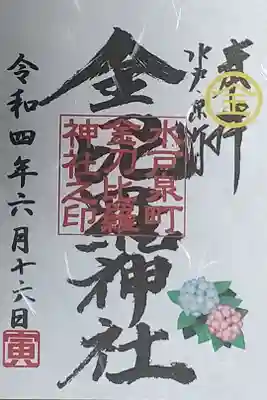 奉拝
水戸泉町
金
金刀比羅神社
水戸泉町
金刀比羅
神社之印
令和四年六月十六日
寅